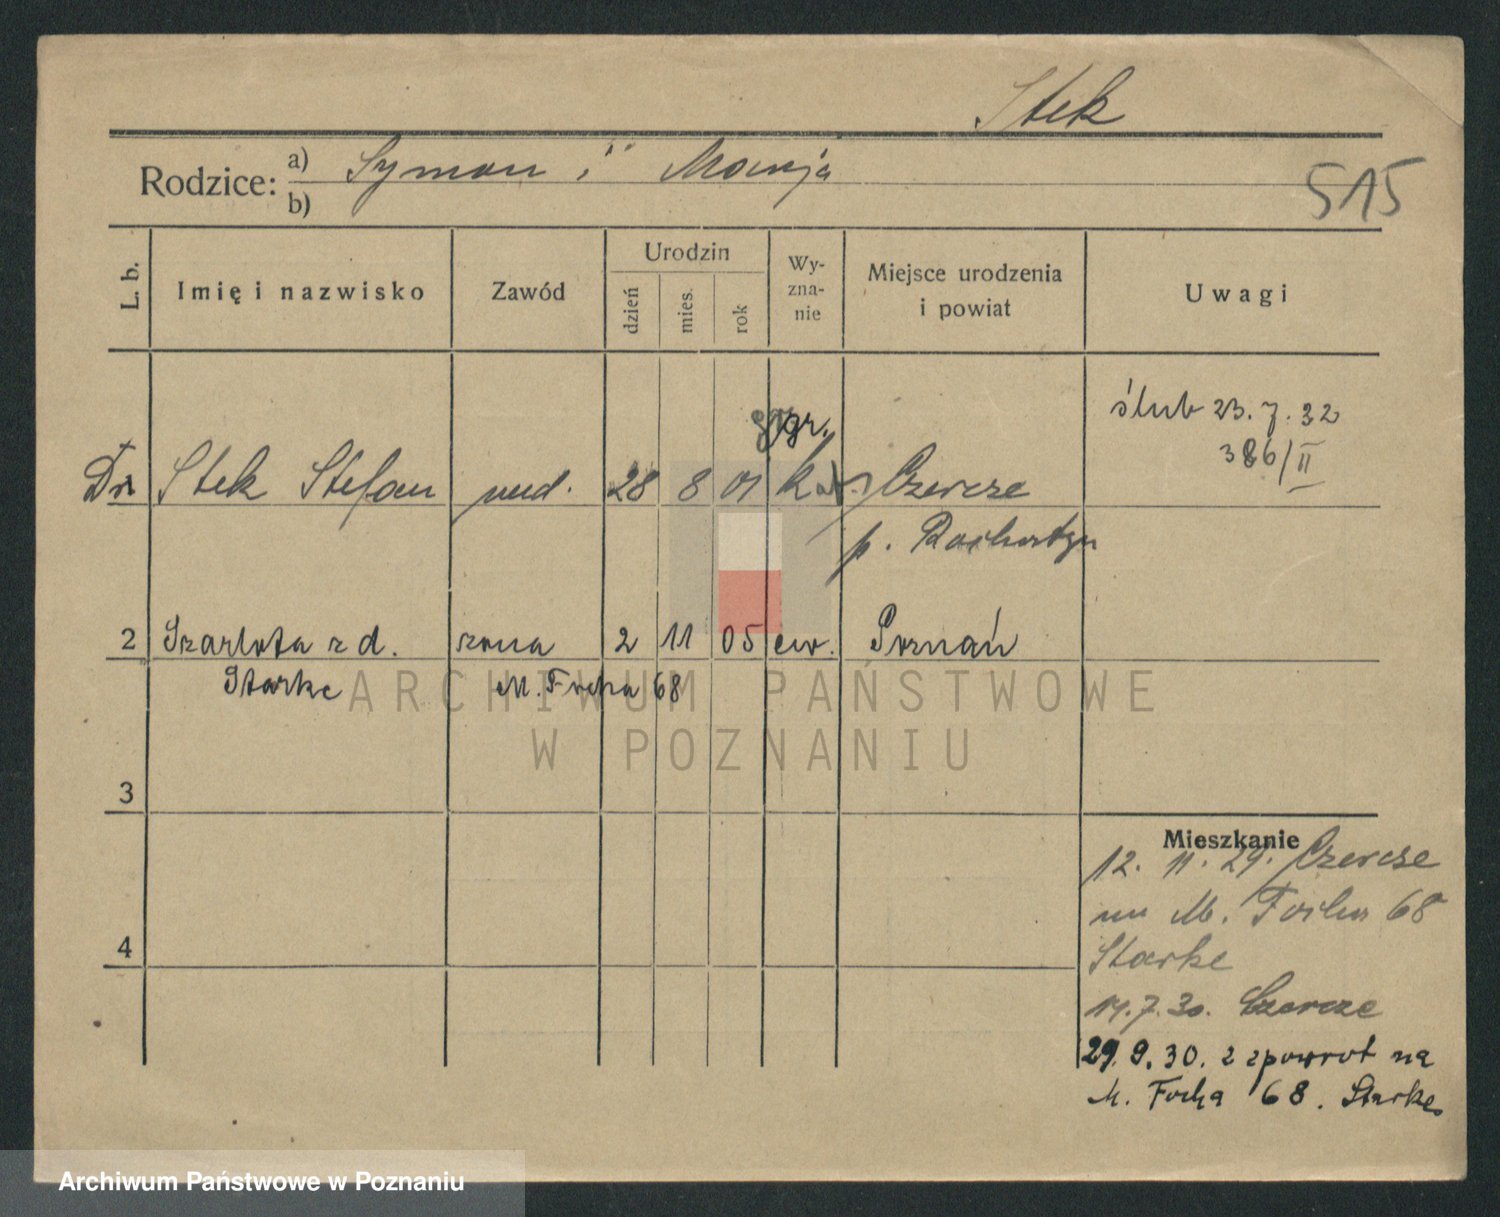 Stek
Rodzice: a) Symon i Marja
b)
515
L. b. Imię i nazwisko Zawód Urodzin dzień mies. rok Wy-zna-nie Miejsce urodzenia i powiat Uwagi
ślub 23.7.32
386/II
gr.
Dr Stek Stefan med. 28 8 01 kat. Czercze
p. Rohatyn
2 Szarlota z d. żona 2 11 05 ew. Poznań
Starke M. Focha 68
3
4
Mieszkanie
12. 11. 29. Czercze
na M. Focha 68
Starke
14.7.30. Czercze
29.9.30. z zpowrot na
M. Focha 68. Starke
ARCHIWUM PAŃSTWOWE
W POZNANIU
Archiwum Państwowe w Poznaniu